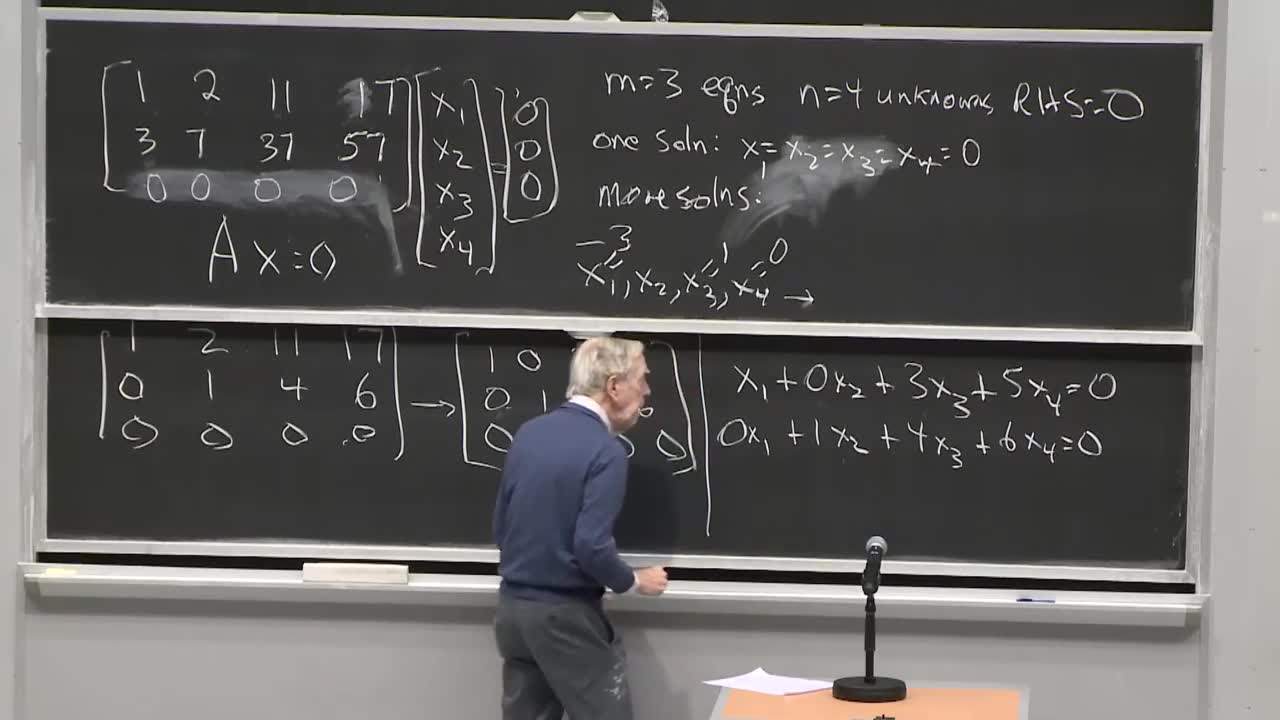 1 2 11 17 x1 0
3 7 37 57 x2 = 0
0 0 0 0 x3 0
x4
A x=0
m=3 eqns n=4 unknowns RHS=0
one soln: x1=x2=x3=x4=0
more solns:
-3 1 0
x1, x2, x3, x4 →
1 2 11 17
0 1 4 6
0 0 0 0
→
1 0
0 1
0 0 0
x1+0x2+3x3+5x4=0
0x1+1x2+4x3+6x4=0